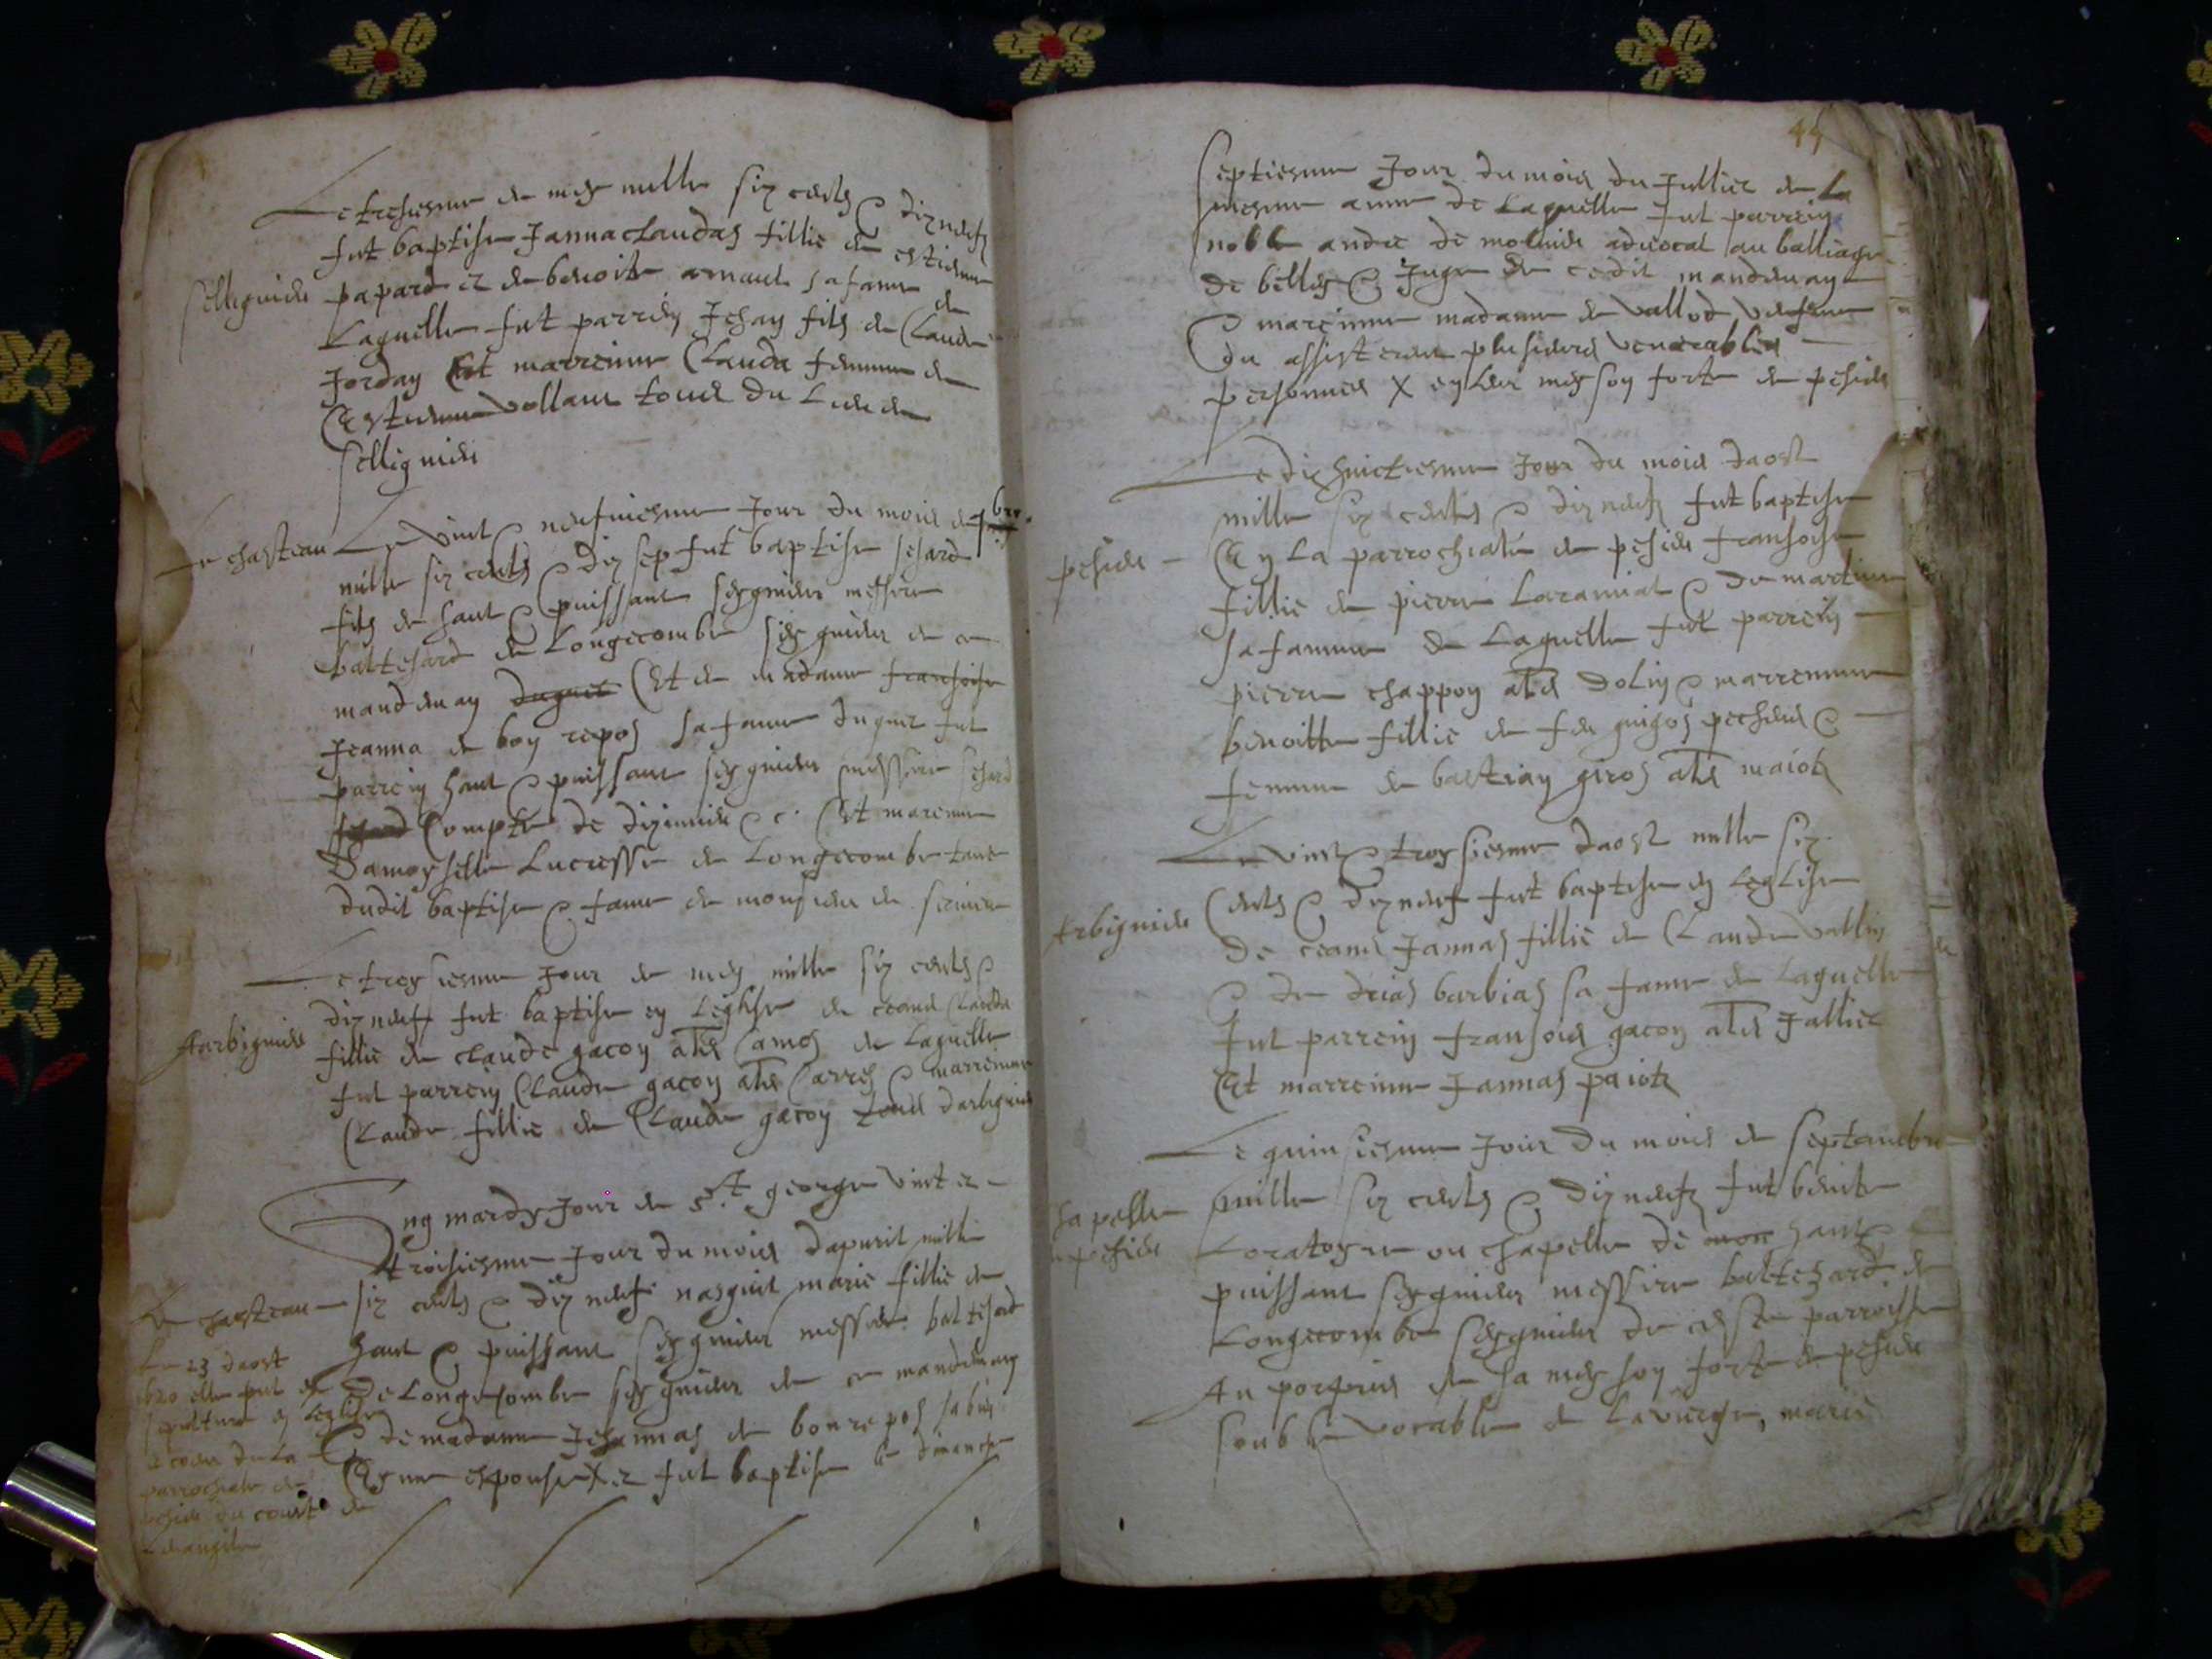 Le tresiesme de mey mille six cents & dix neufz
fut baptise Janna claudaz fillie de estienne
Sellignieu
papard et de benoite arnaut sa fame de
Laquelle fut parrein Jehan filz de Claude
Jordan Et marreinne Clauda femme de
Estienne Vollant tous du Lieu de
Sellignieu
Le chasteau
Le Vint & neufviesme Jour du mois de
mille six cents & dix sep fut baptise sesard
filz de haut & puissant seigneur messire
baltesard de Longecombe seigneur de ce
mandemay duquel Et de madame fransoise
Jeanna de bon repoz sa fame duquel fut
parrein haut & puissant seigneur messire sesard
sesard Compte de dizimieu &c. Et mareinne
Damoyselle Lucresse de Longecombe tante
dudit baptise & fame de monsieur de
Le troysiesme Jour de mey mille six cents &
dix neufz fut baptise en Leglise de ceans Clauda
Aarbignieu
fillie de claude gacon als Camoz de Laquelle
fut parrein Claude gacon als Carrez & marreinne
Claude fillie de Claude gacon tous darbignieu
Ung mardy Jour de St. george vint et
troisiesme Jour du mois dapvril mille
Le chasteau
six cents & dix neufz nasquit marie fillie de
haut & puissant seigneur messire baltesard
De Longecombe seigneur de ce mandemay
& de madame Jehannaz de bonrepoz sa bien
Esmee espouse X et fut baptise le dimanche
Le 23 daost
1620 elle fut
sepulture en Leglise
parrochiale de
pesieu du couste de
Levangile
44
septiesme Jour du mois du Jullier de La
mesme anne de Laquelle fut parrein
noble andre de molinis advocat au balliage
de belley & Juge de cedit mandemay
& marreinne madame de Vallod
Ou assisterent plusieurs venerables
personnes X en leur meyson forte de pesieu
Le dix huictiesme Jour du mois daost
mille six cents & dix neufz fut baptise
pesieu
En La parrochiale de pesieu fransoise
fillie de pierre Laramiat & de martine
sa famme de Laquelle fut parrein
pierre chappon als dolin & marreinne
benoitte fillie de feu guigoz pechieu &
femme de bastian giroz als maiotz
Le vint & troysiesme daost mille six
Cents & dix neuf fut baptise en Leglise
Arbignieu
de ceans Jannaz fillie de Claude vallin
& de driaz barbiaz sa fame de Laquelle
fut parrein fransois gacon als Jallier
Et marreinne Jannaz paiotz
Le quinsiesme Jour du mois de septambre
Chapelle
mille six cents & dix neufz fut benite
pesieu
Loratoyre ou chapelle de mon haut &
puissant seigneur messire baltezard de
Longecombe seigneur de ceste parroisse
Au porpris de sa meyson forte de pesieu
soub le vocable de La vierge marie